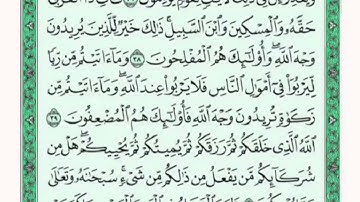 حَقَّهُۥ وَٱلْمِسْكِينَ وَٱبْنَ ٱلسَّبِيلِ ۚ ذَٰلِكَ خَيْرٌ لِّلَّذِينَ يُرِيدُونَ
وَجْهَ ٱللَّهِ ۖ وَأُو۟لَٰٓئِكَ هُمُ ٱلْمُفْلِحُونَ ٣٨ وَمَآ ءَاتَيْتُم مِّن رِّبًا
لِّيَرْبُوَا۟ فِىٓ أَمْوَٰلِ ٱلنَّاسِ فَلَا يَرْبُوا۟ عِندَ ٱللَّهِ ۖ وَمَآ ءَاتَيْتُم مِّن
زَكَوٰةٍ تُرِيدُونَ وَجْهَ ٱللَّهِ فَأُو۟لَٰٓئِكَ هُمُ ٱلْمُضْعِفُونَ ٣٩
ٱللَّهُ ٱلَّذِى خَلَقَكُمْ ثُمَّ رَزَقَكُمْ ثُمَّ يُمِيتُكُمْ ثُمَّ يُحْيِيكُمْ ۖ هَلْ مِن
شُرَكَآئِكُم مَّن يَفْعَلُ مِن ذَٰلِكُم مِّن شَىْءٍ ۚ سُبْحَٰنَهُۥ وَتَعَٰلَىٰ